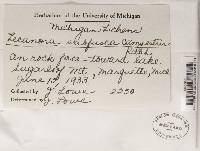 Herbarium of the University of Michigan
Michigan Lichens
Lecanora subfusca campestris
On rock face - toward lake.
Sugarloaf Mt., Marquette, Mich
June 13 1933
Collected by J. Lowe 2250
Determined by J. Lowe